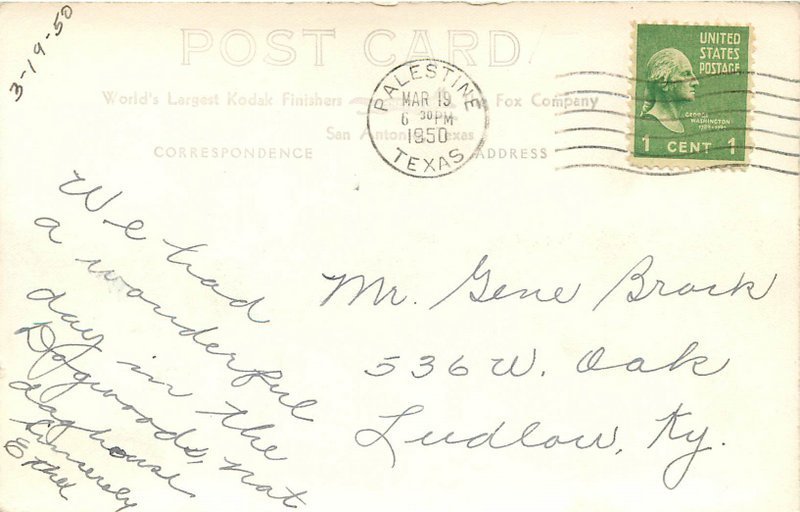 3-19-50
POST CARD
World's Largest Kodak Finishers Fox Company
San Antonio, Texas
CORRESPONDENCE
ADDRESS
PALESTINE
MAR 19
6 30 PM
1950
TEXAS
UNITED
STATES
POSTAGE
GEORGE
WASHINGTON
1 CENT 1
We had
a wonderful
day in the
Dogwoods, not
doghouse
Sincerely
Ethel
Mr. Gene Brock
536 W. Oak
Ludlow, Ky.